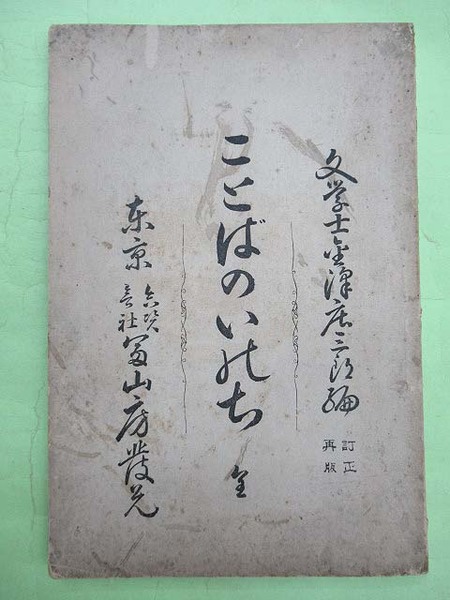 文学士金澤庄三郎編
訂正
再版
ことばのいのち 全
東京
合資
会社
冨山房發兌